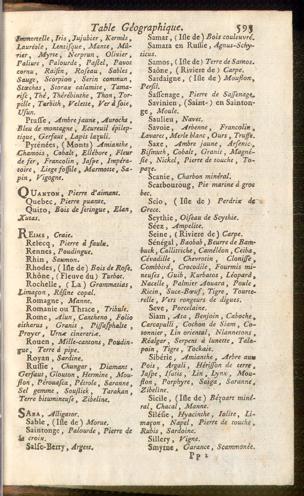 Table Géographique. 595
Immortelle, Iris, Jujubier, Kermès,
Lauréole, Lentisque, Mante, Mû-
rier, Myrte, Nerprun, Olivier,
Paliure, Palourde, Pastel, Pavot
cornu, Raisin, Roseau, Sables,
Sauge, Scorpion, Serin commun,
Stœchas, Storax calamite, Tama-
risc, Thé, Thérébinthe, Thon, Tor-
pille, Turbith, Velette, Ver à soie,
Usfun.
Prusse, Ambre jaune, Aurochs,
Bleu de montagne, Eureuil épilep-
tique, Gerfaut, Lapis lazuli.
Pyrénées, (Monts) Amianthe,
Chamois, Cobalt, Ellébore, Fleur
de fer, Francolin, Jaspe, Impéra-
toire, Liege fossile, Marmotte, Sa-
pin, Vigogne.
QUANTON, Pierre d'aimant.
Quebec, Pierre puante.
Quito, Bois de seringue, Elan,
Xutas.
REIMS, Craie.
Rebecq, Pierre à faulx.
Rennes, Poudingue.
Rhin, Saumon.
Rhodes, (Isle de) Bois de Rose.
Rhône, (Fleuve du) Turbot.
Rochelle, (La) Grammatias,
Limaçon, Résine copal.
Romagne, Manne.
Romanie ou Thrace, Tribule.
Rome, Alun, Catochena, Folio
eitharus, Granit, Pissasphalte
Proyer, Urne cineraire.
Rouen, Mille-cantons, Poudin-
gue, Terre à pipe.
Royan, Sardine.
Russie, Chungar, Diamant,
Gerfaut, Glouton, Hermine, Mou-
flon, Pérouasca, Pétrole, Saranne,
Sel gemme, Souslik, Tarakan,
Terre bitumineuse, Zibeline.
SABA, Alligator.
Sable, (Isle de) Morue.
Saintonge, Palourde, Pierre de
la croix.
Salse-Berry, Argent.
Samar, (Isle de) Bois couleuvré.
Samara en Russie, Agnus-Schy-
ticus.
Samos, (Isle de) Terre de Samos.
Saône, (Riviere de) Carpe.
Sardaigne, (Isle de) Mouflon,
Persil.
Sassenage, Pierre de Sassenage.
Savinien, (Saint-) en Sainton-
ge, Moule.
Saulieu, Navet.
Savoie, Arbenne, Francolin,
Lavaret, Merle blanc, Ours, Truffe.
Saxe, Ambre jaune, Arsenic,
Bismuth, Cobalt, Granit, Magné-
sie, Nickel, Pierre de touche, To-
paze.
Scanie, Charbon minéral.
Scarboroug, Pie marine à gros
bec.
Scio, (Isle de) Perdrix de
Grece.
Scythie, Oiseau de Scythie.
Séez, Ampelite.
Seine, (Riviere de) Carpe.
Sénégal, Baobab, Beurre de Bam-
buck, Callitriche, Caméléon, Ceiba,
Cévadille, Chevrotin, Clonisse,
Combird, Crocodile, Fourmis mi-
neuses, Guib, Kurbatos, Léopard,
Nacelle, Palmier Aouara, Poule,
Ricin, Suce-Bœuf, Tigre, Tourte-
relle, Vers rongeurs de digues.
Seve, Porcelaine.
Siam, Ara, Benjoin, Caboche,
Caropulli, Cochon de Siam, Co-
tonnier, Lin oriental, Nlannetons,
Réalgar, Serpent à lunette, Tala-
poin, Tigre, Tockaie.
Sibérie, Amianthe, Arbre aux
Pois, Argali, Hérisson de terre,
Jaspe, Isatis, Lin, Lynx, Mou-
flon, Porphyre, Saiga, Saranne,
Zibeline.
Sicile, (Isle de) Bézoart miné-
ral, Chacal, Manne.
Silésie, Hyacinthe, Ialite, Li-
maçon, Napel, Pierre de touche,
Rubis, Sardoine.
Sillery, Vigne.
Smyrne, Garance, Scammonée.
Pp 2